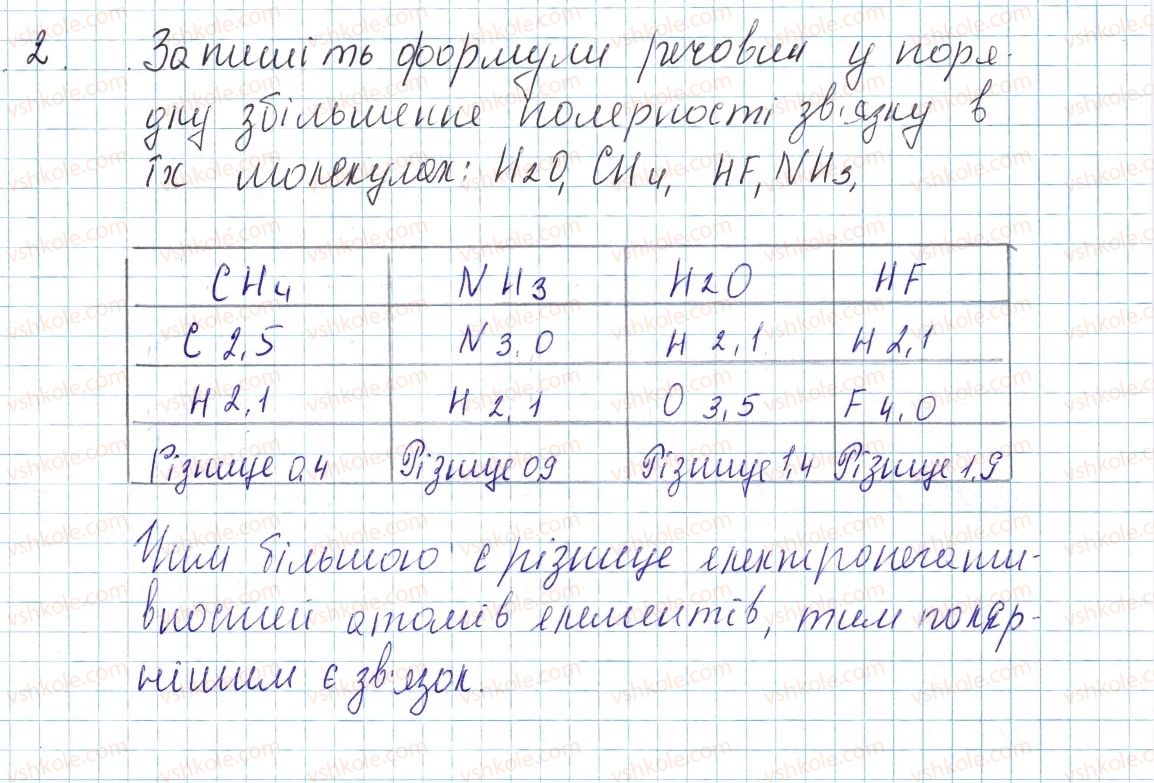 2. Запишіть формули речовин у поря-
дку збільшення полярності зв'язку в
їх молекулах: H2O, CH4, HF, NH3,
CH4 NH3 H2O HF
C 2,5 N 3,0 H 2,1 H 2,1
H 2,1 H 2,1 O 3,5 F 4,0
Різниця 0,4 Різниця 0,9 Різниця 1,4 Різниця 1,9
Чим більшою є різниця електронегати-
вностей атомів елементів, тим поляр-
нішим є зв'язок.
vshkole.com